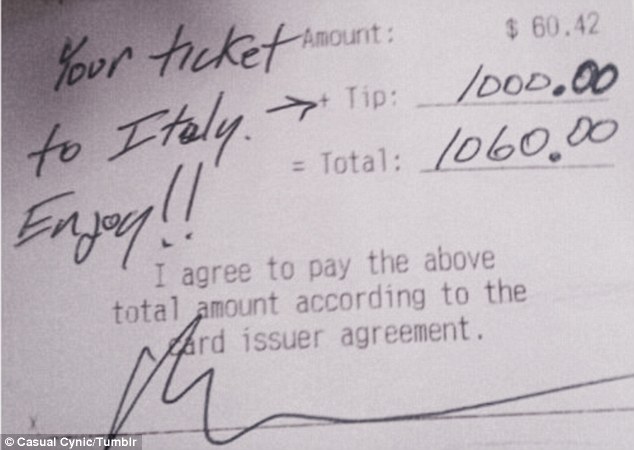 Your ticket Amount: $ 60.42
to Italy. → + Tip: 1000.00
Enjoy!! = Total: 1060.00
I agree to pay the above
total amount according to the
card issuer agreement.
X
© Casual Cynic/Tumblr